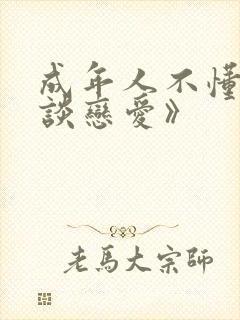 成年人不懂
談戀愛》
老馬大宗師